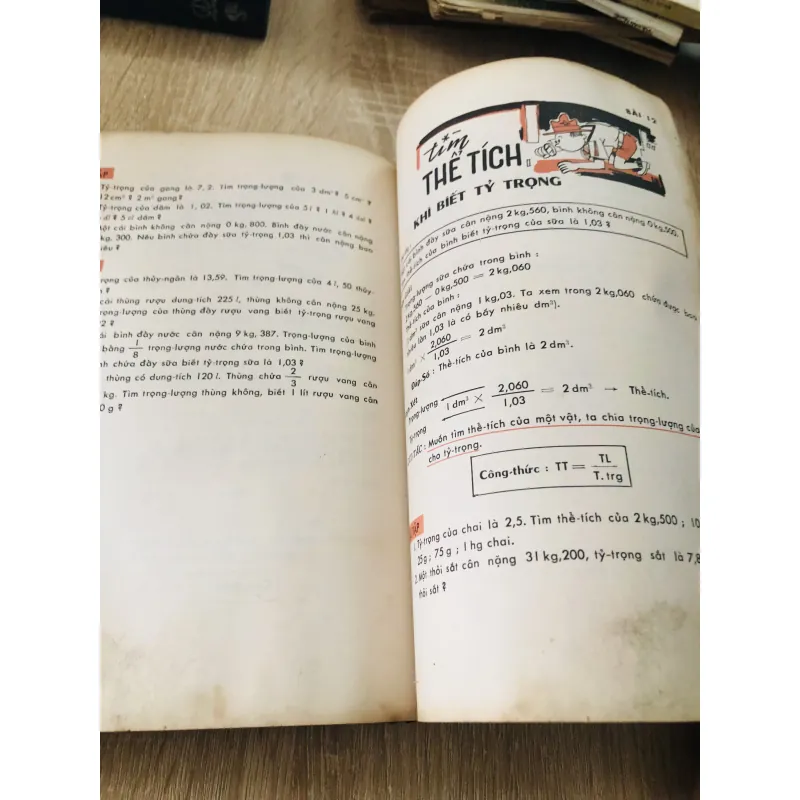 ẬP
Tỷ-trọng của gang là 7, 2. Tìm trọng-lượng của 3 dm³ ? 5 cm³
12 cm³ ? 2 m³ gang ?
Tỷ-trọng của dấm là 1, 02. Tìm trọng-lượng của 5 l ? 1 hl ? 4 dal ?
dl ? 5 cl dấm ?
Một cái bình không cân nặng 0 kg, 800. Bình đầy nước cân nặng
kg, 300. Nếu bình chứa đầy sữa tỷ-trọng 1,03 thì cân nặng bao
hiêu ?
trọng của thủy-ngân là 13,59. Tìm trọng-lượng của 4 l, 50 thủy-
n ?
cái thùng rượu dung-tích 225 l, thùng không cân nặng 25 kg.
trọng-lượng của thùng đầy rượu vang biết tỷ-trọng rượu vang
92 ?
ái bình đầy nước cân nặng 9 kg, 387. Trọng-lượng của bình
bằng 1/8 trọng-lượng nước chứa trong bình. Tìm trọng-lượng
nh chứa đầy sữa biết tỷ-trọng sữa là 1,03 ?
thùng có dung-tích 120 l. Thùng chứa 2/3 rượu vang cân
kg. Tìm trọng-lượng thùng không, biết 1 lít rượu vang cân
0 g ?
BÀI 12
tìm
THỂ TÍCH
KHI BIẾT TỶ TRỌNG
cái bình đầy sữa cân nặng 2 kg,560, bình không cân nặng 0 kg,500.
thể-tích của bình biết tỷ-trọng của sữa là 1,03 ?
Trọng-lượng sữa chứa trong bình :
560 — 0 kg,500 = 2 kg,060
Thể tích của bình :
1 dm³ sữa cân nặng 1 kg,03. Ta xem trong 2 kg,060 chứa được bao
nhiêu lần 1,03 là có bấy nhiêu dm³).
1 dm³ × 2,060/1,03 = 2 dm³
Đáp-Số : Thể-tích của bình là 2 dm³.
Xét
Trọng-lượng
Tỷ-trọng
1 dm³ × 2,060/1,03 = 2 dm³ → Thể-tích.
TẮC : Muốn tìm thể-tích của một vật, ta chia trọng-lượng của
cho tỷ-trọng.
Công-thức : TT = TL/T. trg
TẬP
1. Tỷ-trọng của chai là 2,5. Tìm thể-tích của 2 kg,500 ; 10
25 g ; 75 g ; 1 hg chai.
2. Một thỏi sắt cân nặng 31 kg,200, tỷ-trọng sắt là 7,8
thỏi sắt ?